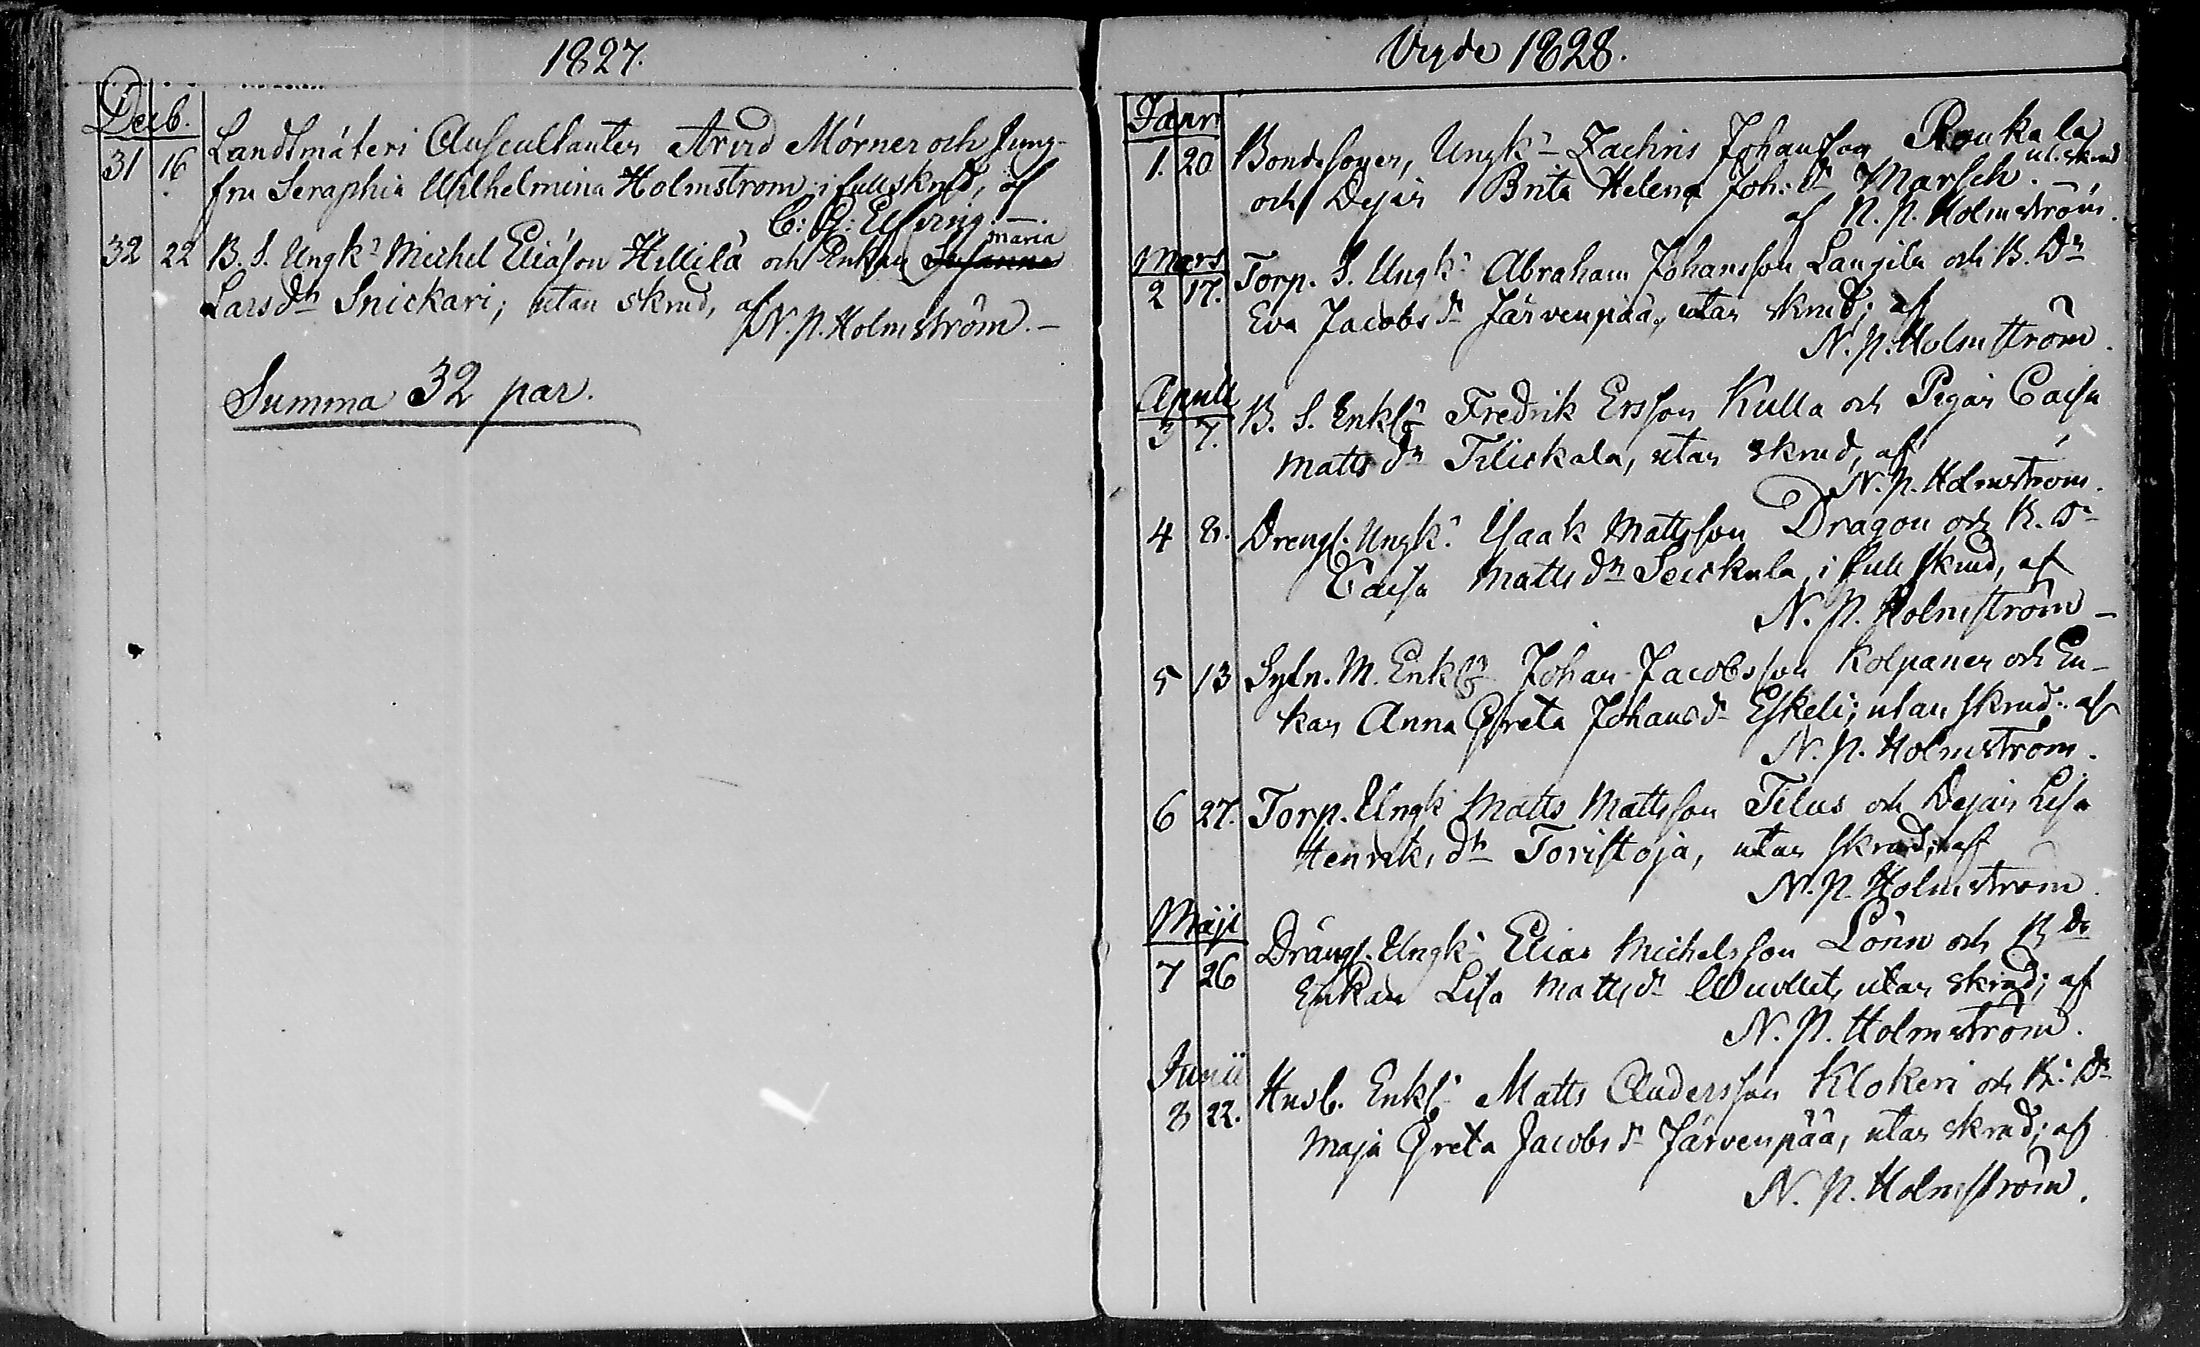 1827.
Decb.
31 16 Landtmäteri Auscultanten Arvid Mörner och Jung-
fru Seraphia Wilhelmina Holmström i full skrud, af
C: G: Elfving. —.
32 22 B. S. Ungk. Michel Eliasson Hillilä och Enkan Susanna Maria
Larsdr Snickari; utan skrud, af
N. P. Holmström. —
Summa 32 par.
Vigde 1828.
Janri
1. 20 Bondesonen, Ungk. Zachris Johansson Roukala
och Dejan Brita Helena Joh: dr Marsch. ut. skrud
af N. P. Holmström.
Mars
2 17. Torp. S. Ungk. Abraham Johansson Langila och B. Dr
Eva Jacobs dr Järvenpää, utan skrud; af
N. P. Holmström.
Aprill
3 7. B. S. Enkl. Fredrik Ersson Kulla och Pigan Caisa
Matts dr Tilickala, utan skrud, af
N. P. Holmström.
4 8. Drengs. Ungk. Isaak Mattsson Dragon och B. Dr
Caisa Matts dr Seickala i full skrud, af
N. P. Holmström —
5 13 Sytn. M. Enkl. Johan Jacobsson Kolpanen och En-
kan Anna Greta Johans dr Eskeli; utan skrud. af
N. P. Holmström.
6 27. Torp. Ungk. Matts Mattsson Tilus och Dejan Lisa
Henriks dr Toristoja, utan skrud; af
N. P. Holmström.
Maji
7 26 Drängs. Ungk. Elias Michelsson Lönn och B de
Enkan Lisa Matts dr utan skrud; af
N. P. Holmström.
Junii
8 22. Husb. Enkl. Matts Andersson Klokeri och B. Dr
Maja Greta Jacobs dr Järvenpää, utan skrud; af
N. P. Holmström.